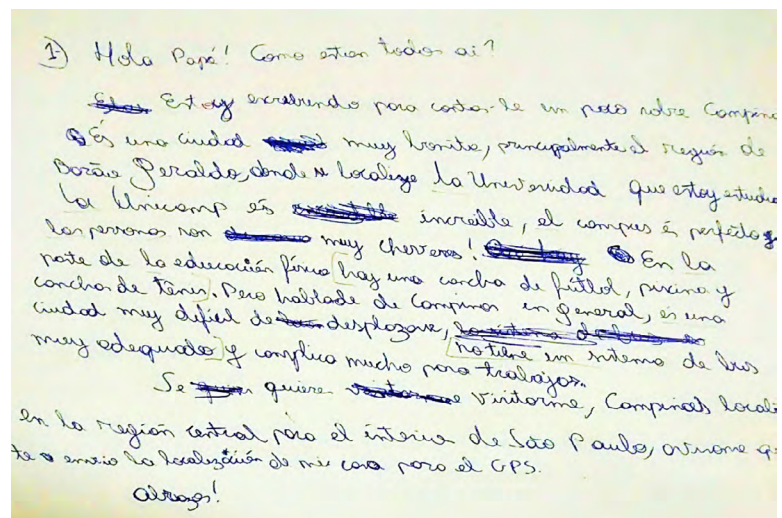 1-) Hola Papá! Como estan todos ai?
Estoy escribindo para contar-le un poco sobre Campina
És una ciudad muy bonita, principalmente el region de
Barão Geraldo, donde se localize la Universidad que estoy estudia
La Unicamp és increible, el campus és perfecto y
las personas son muy cheveres! En la
parte de la educación física hay una cancha de fútbol, piscina y
canchas de tênis. Pero hablade de Campinas en general, és una
ciudad muy dificil de desplazarse,
no tiene un sistema de bus
muy adequado y complica mucho para trabajar.
Se quieres visitarme, Campinas locali
en la región central para el interior de São Paulo, avisame qu
te envio la localización de mi casa para el GPS.
abrazos!